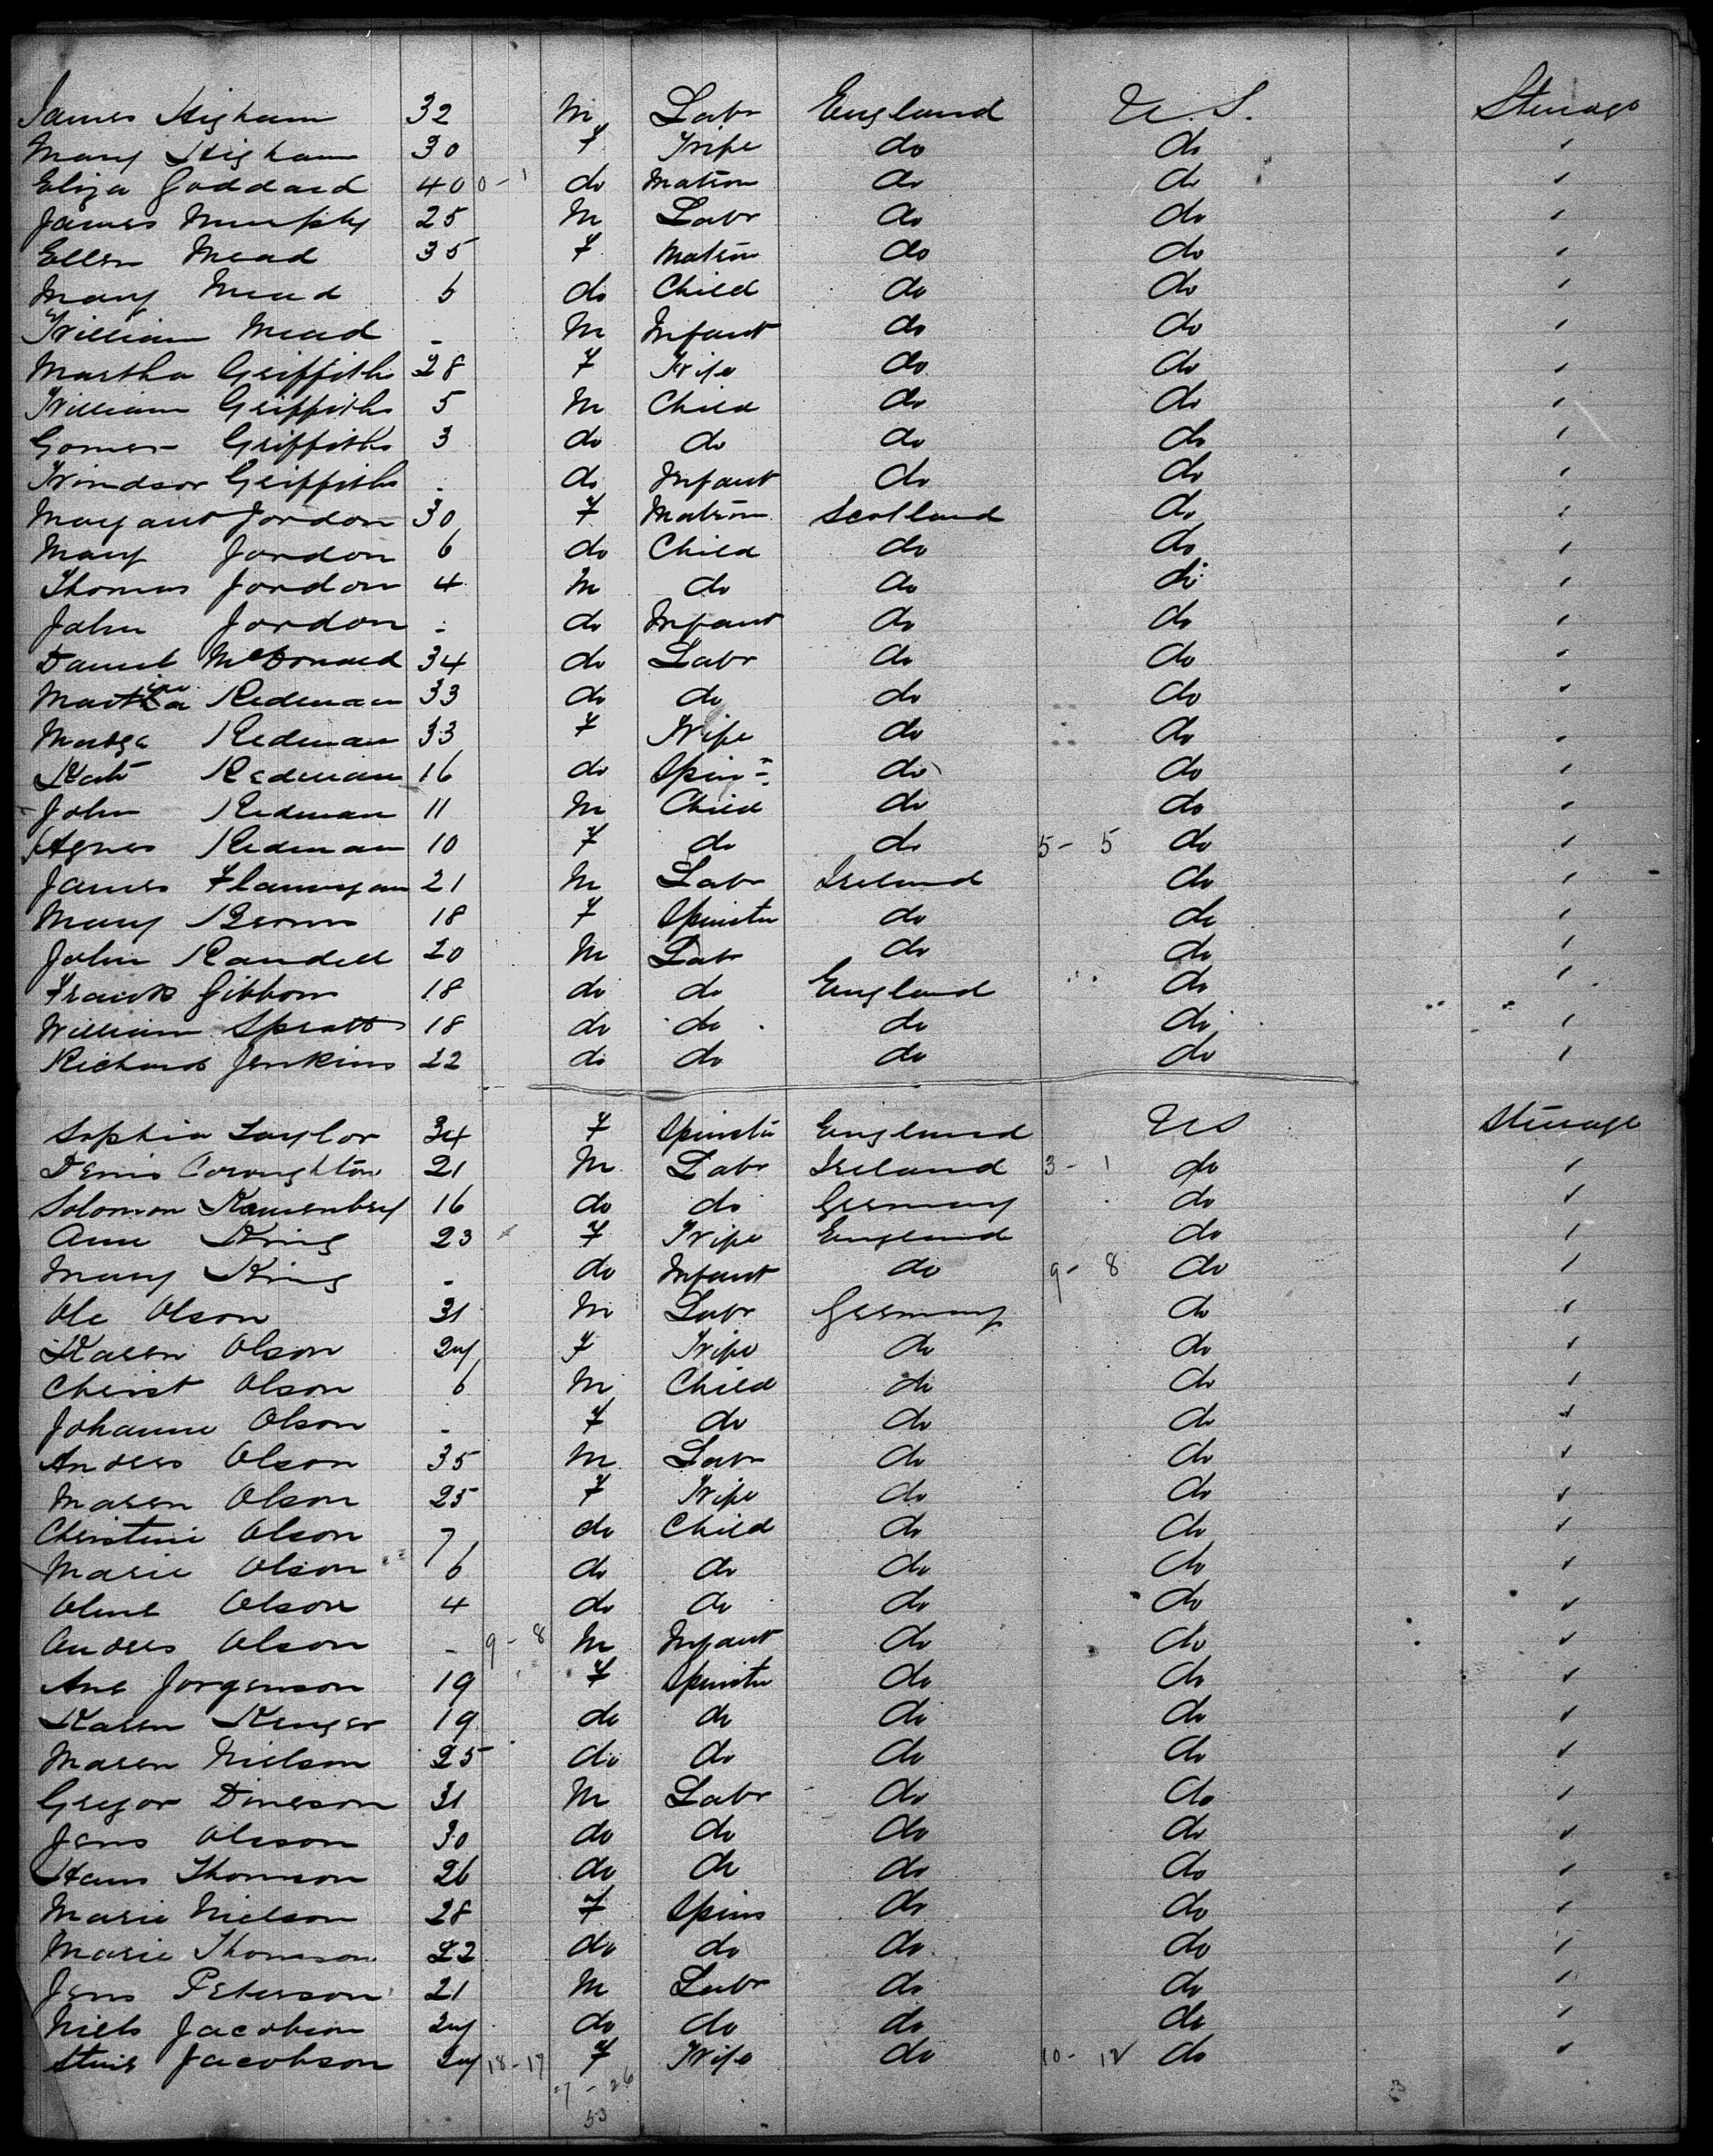 James Higham 32 M Labr England U.S. Steerage
Mary Higham 30 F Wife do do "
Eliza Goddard 40 0-1 do Matron do do "
James Murphy 25 M Labr do do "
Ellen Mead 35 F Matron do do "
Mary Mead 6 do Child do do "
William Mead - M Infant do do "
Martha Griffiths 28 F Wife do do "
William Griffiths 5 M Child do do "
Gomer Griffiths 3 do do do do "
Windsor Griffiths - do Infant do do "
Margaret Jordon 30 F Matron Scotland do "
Mary Jordon 6 do Child do do "
Thomas Jordon 4 M do do do "
John Jordon - do Infant do do "
Daniel McDonald 34 do Labr do do "
Martin Redman 33 do do do do "
Redman 33 F Wife do do "
Kate Redman 16 do Spinr do do "
John Redman 11 M Child do do "
Agnes Redman 10 F do do 5-5 do "
James Flannigan 21 M Labr Ireland do "
Mary 18 F Spinster do do "
John Randell 20 M Labr do do "
Frank Gibbons 18 do do England do "
William Spratt 18 do do do do "
Richard Jenkins 22 do do do do "
Sophia Taylor 34 F Spinster England US Steerage
Denis 21 M Labr Ireland 3-1 do "
Solomon 16 do do Germany do "
Ann King 23 F Wife England do "
Mary King - do Infant do 9-8 do "
Ole Olson 31 M Labr Germany do "
Karen Olson 24 F Wife do do "
Christ Olson 6 M Child do do "
Johanne Olson - F do do do "
Anders Olson 35 M Labr do do "
Maren Olson 25 F Wife do do "
Christine Olson 7 do Child do do "
Marie Olson 6 do do do do "
Oline Olson 4 do do do do "
Anders Olson - 9-8 M Infant do do "
Ane Jorgenson 19 F Spinster do do "
Karen 19 do do do do "
Maren Nielson 25 do do do do "
Gregor Dineson 31 M Labr do do "
Jens Olsson 30 do do do do "
Hans Thomson 26 do do do do "
Marie Nielson 28 F Spins do do "
Marie Thomson 22 do do do do "
Jens Peterson 21 M Labr do do "
Niels Jacobson 24 do do do do "
Jacobson 24 18-17 F Wife do 10-12 do "
7-26 3
53